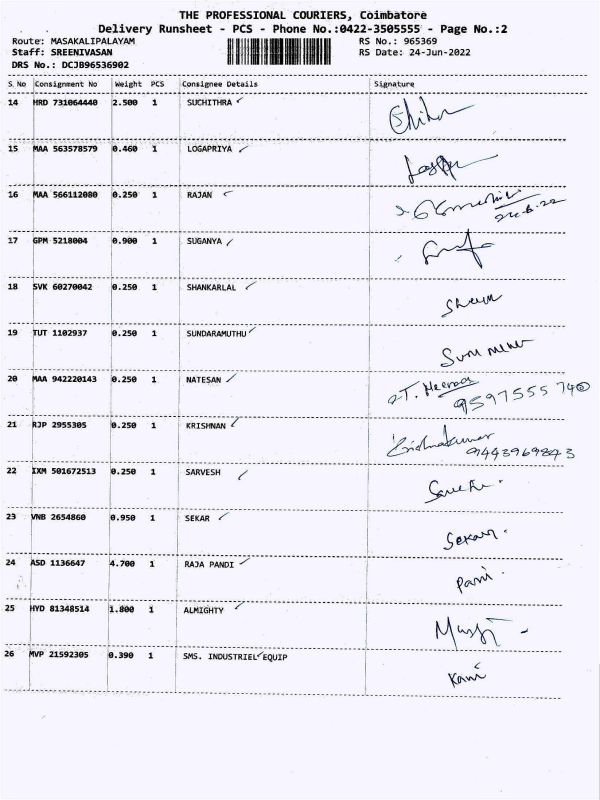 THE PROFESSIONAL COURIERS, Coimbatore
Delivery Runsheet - PCS - Phone No.:0422-3505555 - Page No.:2
Route: MASAKALIPALAYAM RS No.: 965369
Staff: SREENIVASAN RS Date: 24-Jun-2022
DRS No.: DCJB96536902
S.No Consignment No Weight PCS Consignee Details Signature
14 HRD 731064440 2.500 1 SUCHITHRA
15 MAA 563578579 0.460 1 LOGAPRIYA
16 MAA 566112080 0.250 1 RAJAN
24.6.22
17 GPM 5218004 0.900 1 SUGANYA
18 SVK 60270042 0.250 1 SHANKARLAL
19 TUT 1102937 0.250 1 SUNDARAMUTHU
20 MAA 942220143 0.250 1 NATESAN
9597555740
21 RJP 2955305 0.250 1 KRISHNAN Krishnakumar
9443969843
22 IXM 501672513 0.250 1 SARVESH
23 VNB 2654860 0.950 1 SEKAR Sekar.
24 ASD 1136647 4.700 1 RAJA PANDI
25 HYD 81348514 1.800 1 ALMIGHTY
26 MVP 21592305 0.390 1 SMS. INDUSTRIEL EQUIP Kani